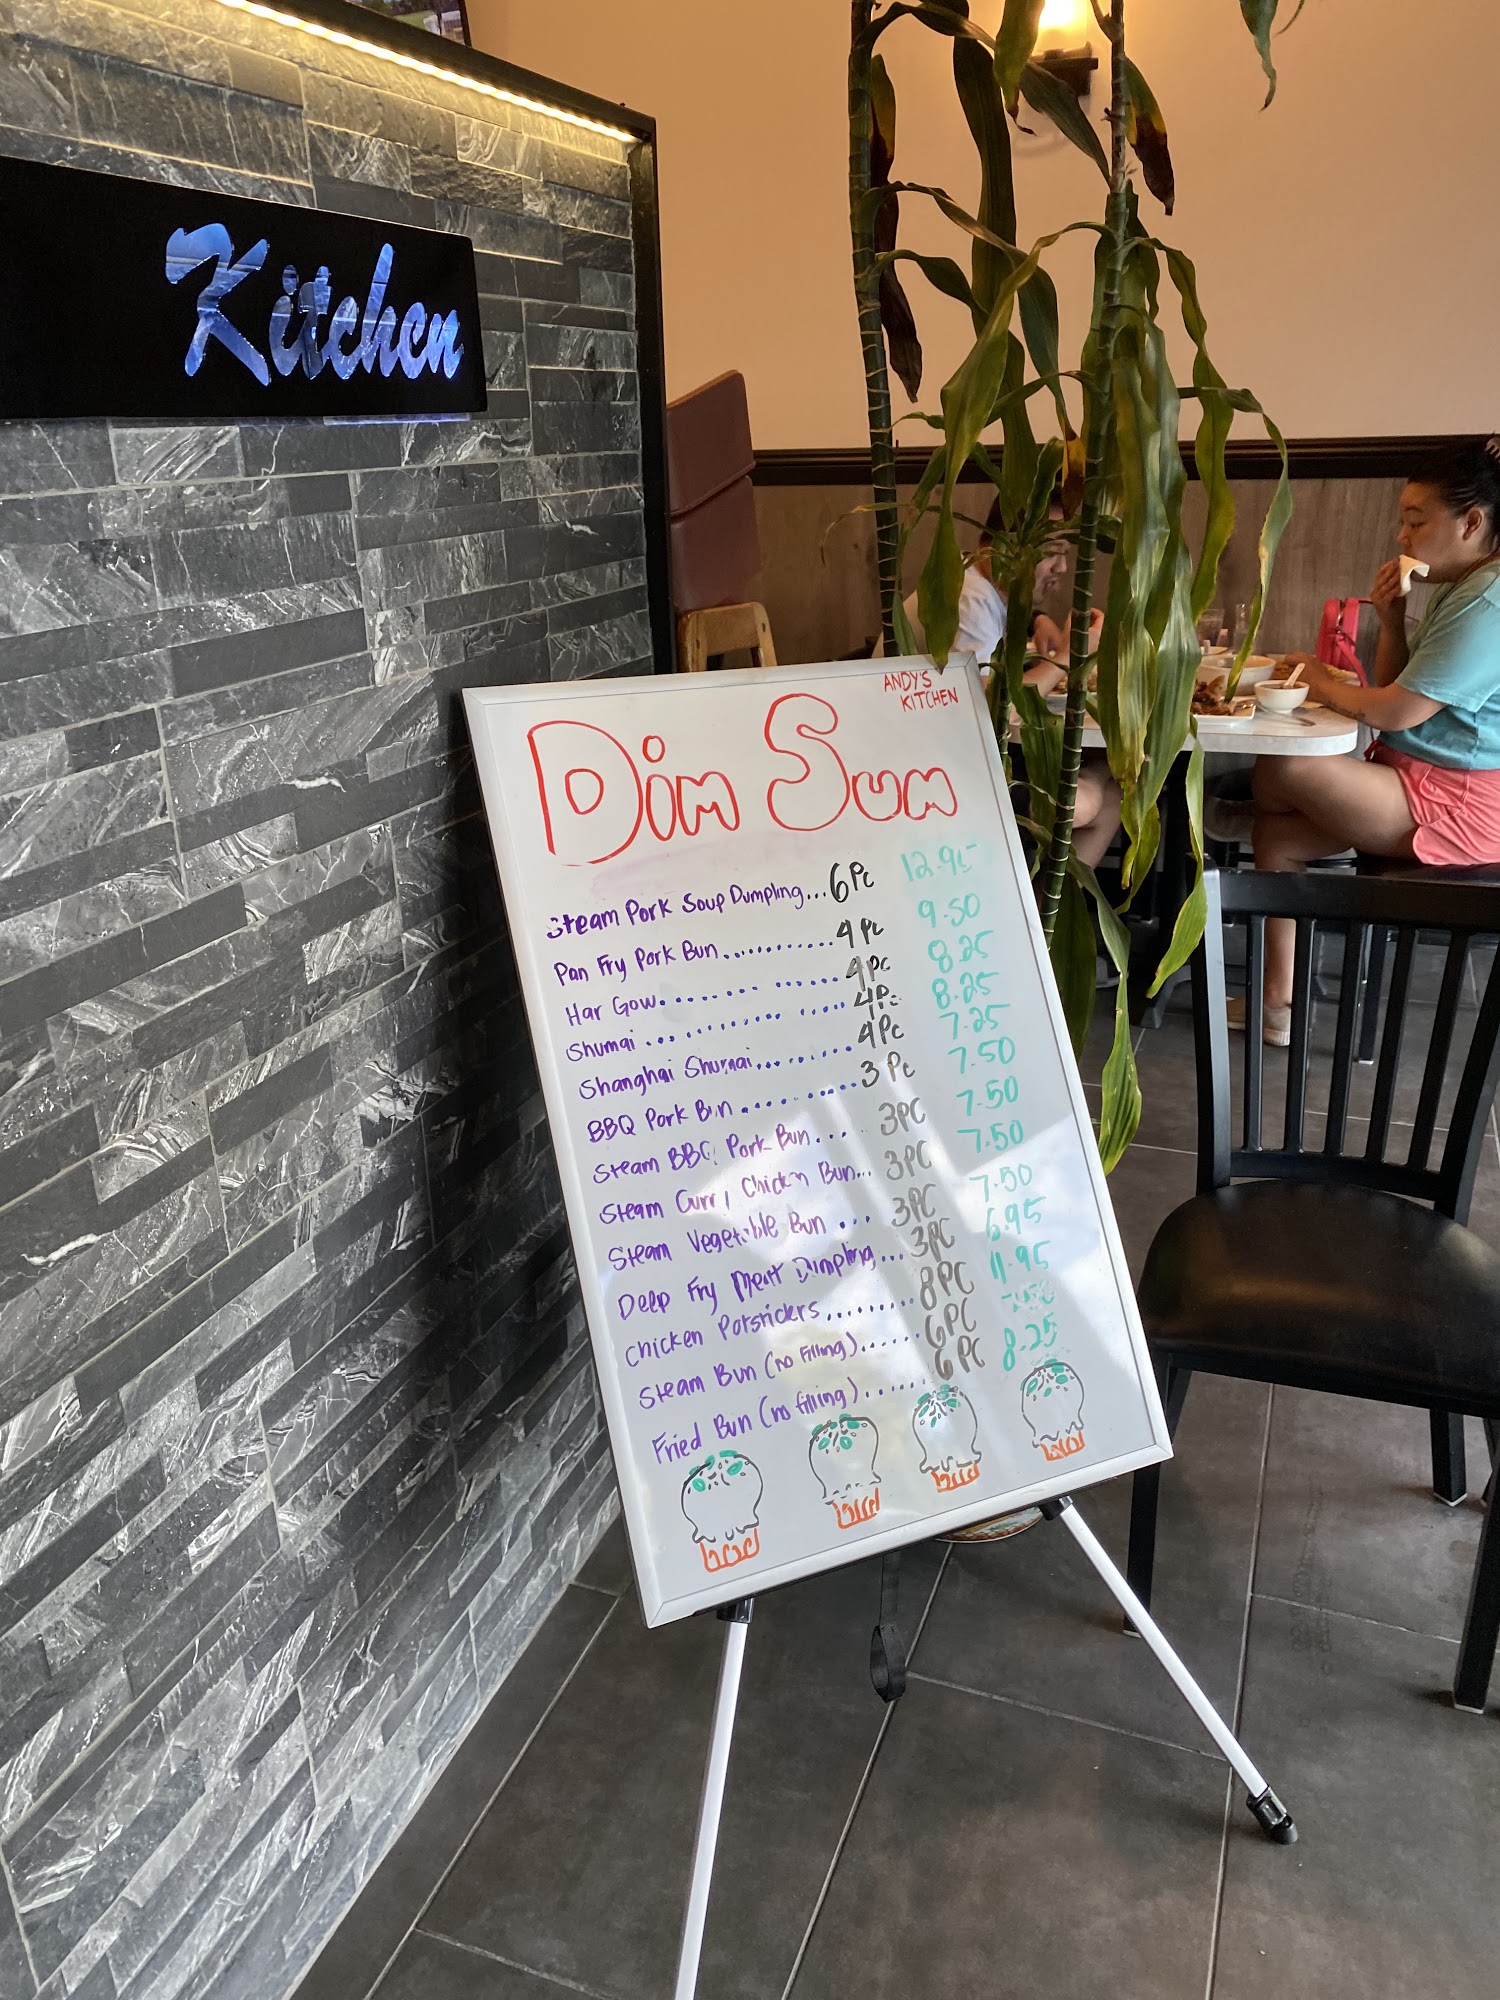 Kitchen
ANDY'S
KITCHEN
Dim Sum
Steam Pork Soup Dumpling... 6 Pc 12.95
Pan Fry Pork Bun............ 4 Pc 9.50
Har Gow............... 4 Pc 8.25
Shumai ............... 4 Pc 8.25
Shanghai Shumai......... 4 Pc 7.25
BBQ Pork Bun .......... 3 Pc 7.50
Steam BBQ Pork Bun.... 3PC 7.50
Steam Curry Chicken Bun... 3PC 7.50
Steam Vegetable Bun ... 3PC 7.50
Deep Fry Meat Dumpling... 3PC 6.95
Chicken Potstickers......... 8PC 11.95
Steam Bun (no filling)...... 6PC
Fried Bun (no filling)...... 6 PC 8.25